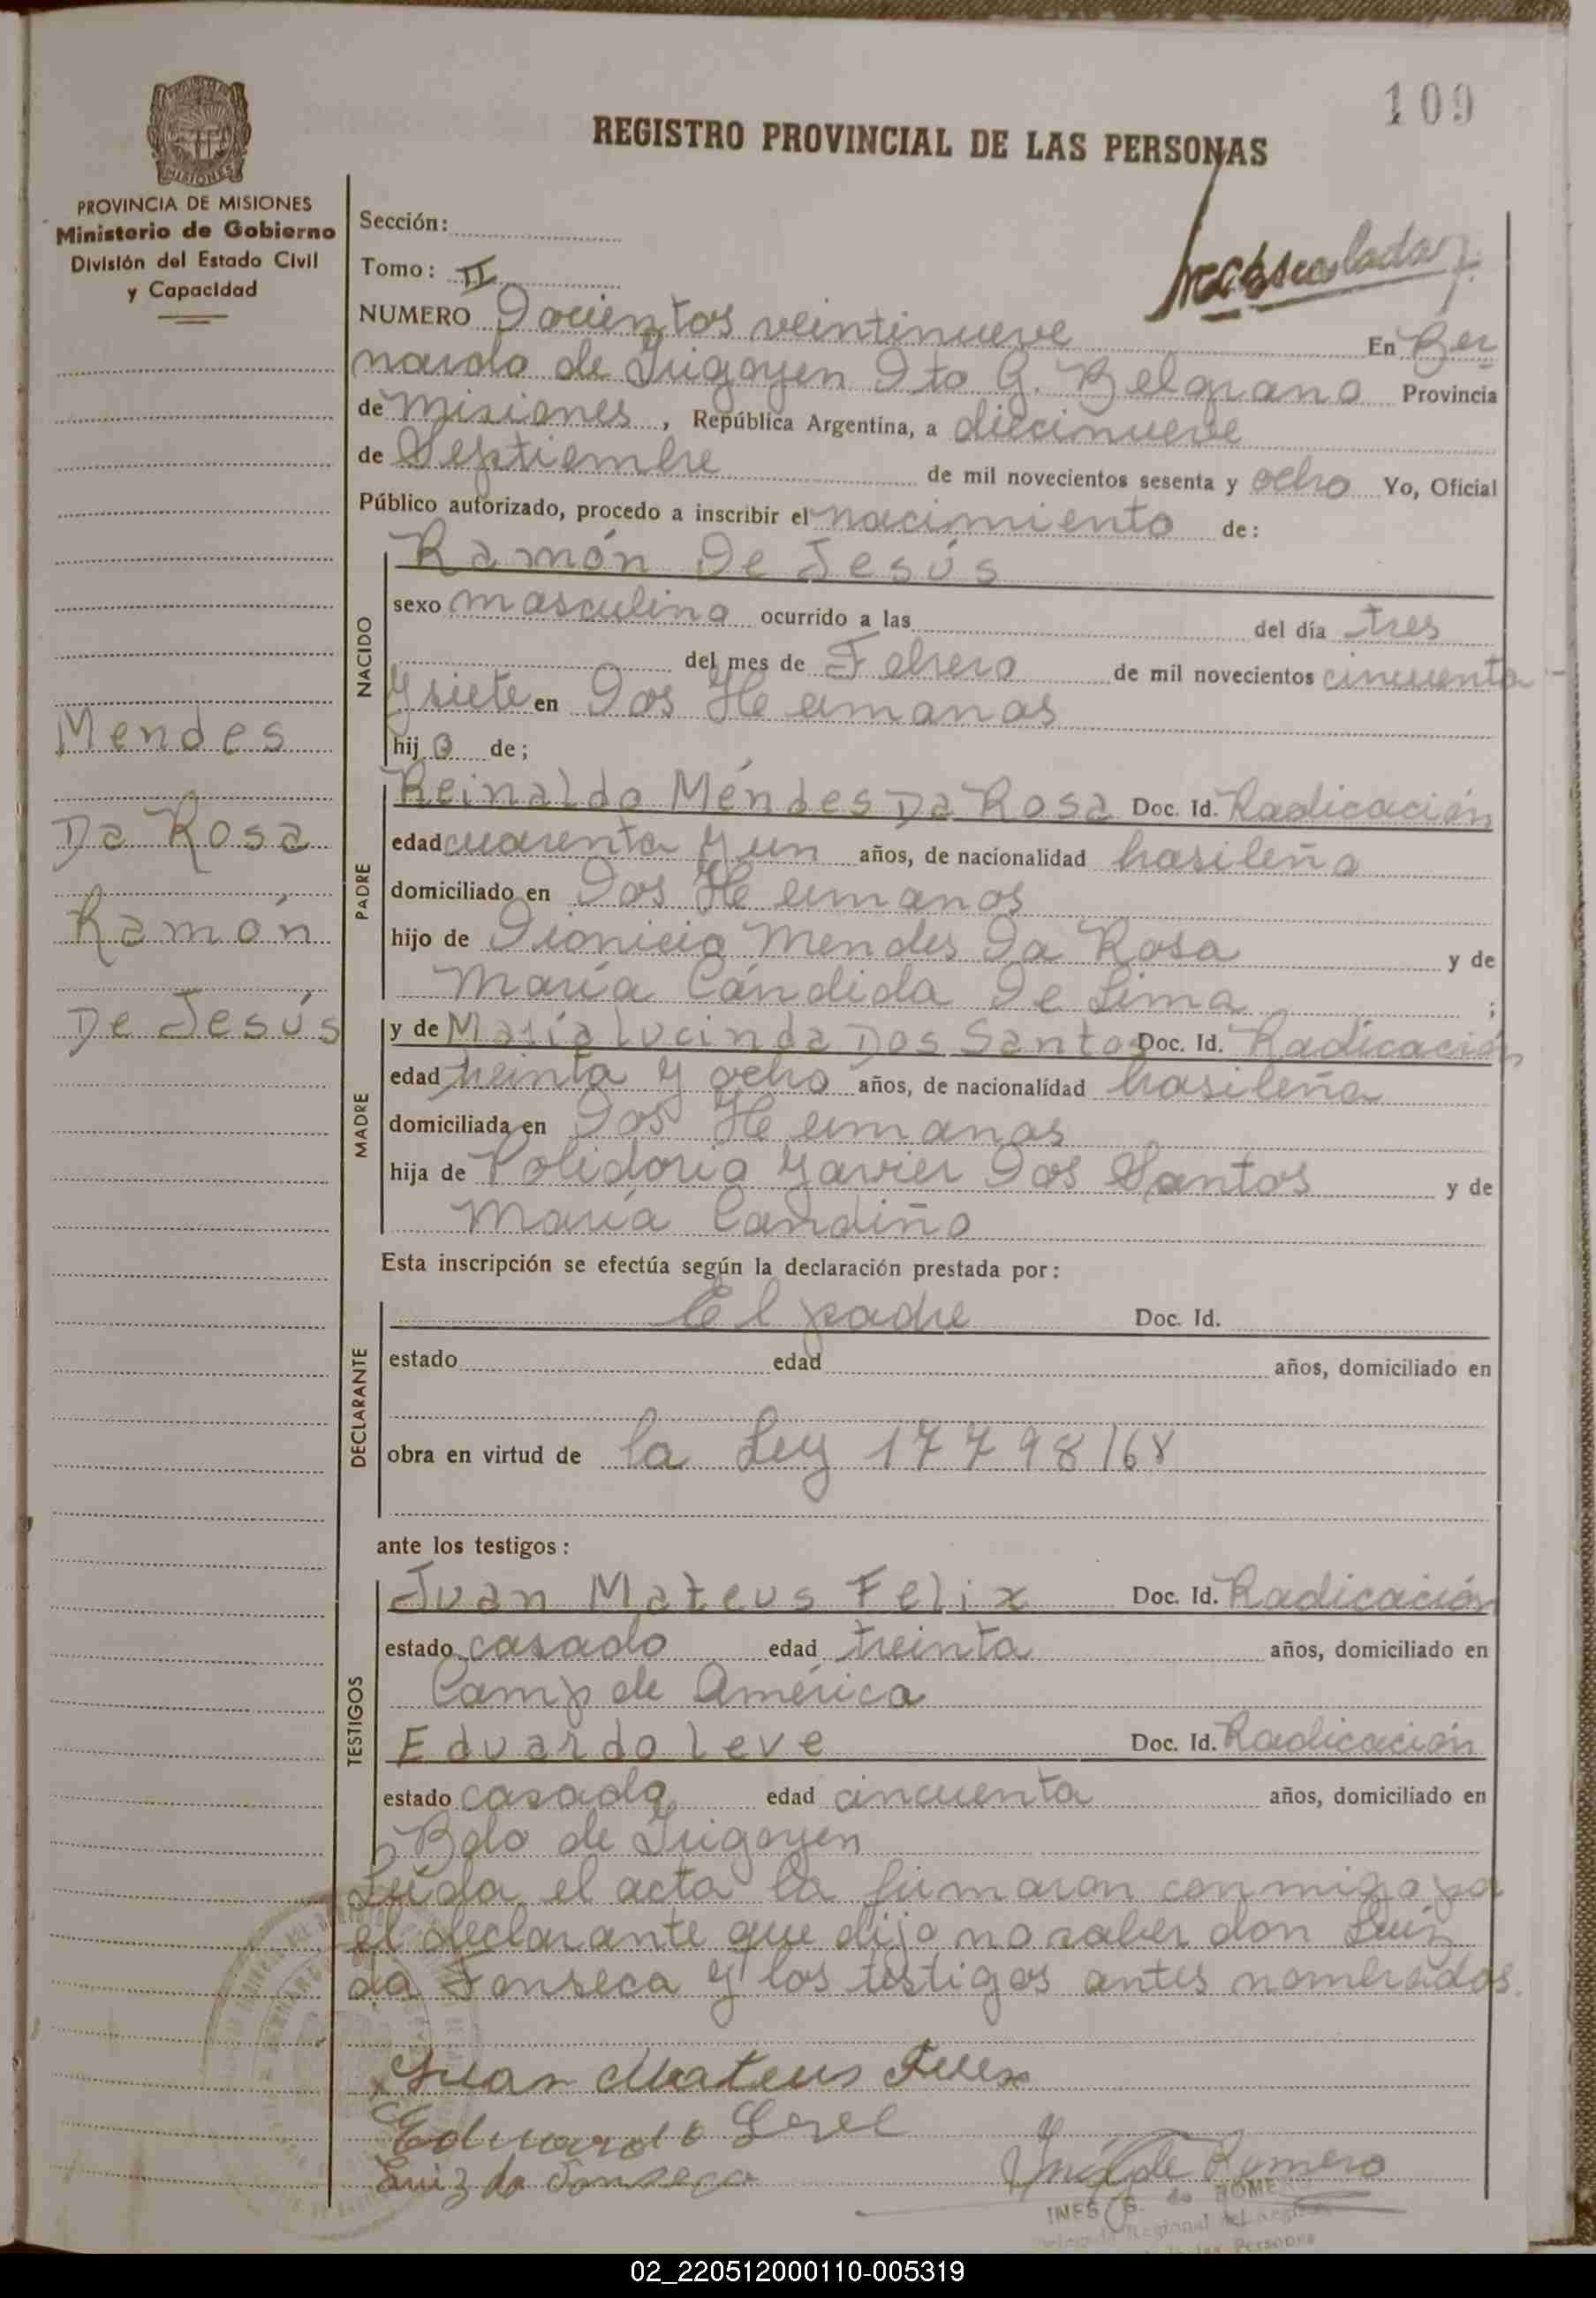 109
REGISTRO PROVINCIAL DE LAS PERSONAS
MISIONES
PROVINCIA DE MISIONES
Ministerio de Gobierno
División del Estado Civil
y Capacidad
Sección:
Tomo: II
NUMERO Docientos veintinueve En Ber
nardo de Irigoyen Dto G. Belgrano Provincia
de Misiones, República Argentina, a diecinueve
de Septiembre de mil novecientos sesenta y ocho Yo, Oficial
Público autorizado, procedo a inscribir el nacimiento de:
Ramón De Jesús
NACIDO
sexo masculino ocurrido a las del día tres
del mes de Febrero de mil novecientos cincuenta
y siete en Dos Hermanas
hijo de;
Mendes
Da Rosa
Ramón
De Jesús
PADRE
Reinaldo Méndes Da Rosa Doc. Id. Radicación
edad cuarenta y un años, de nacionalidad brasileña
domiciliado en Dos Hermanas
hijo de Dionicio Mendes Da Rosa y de
María Cándida De Lima ;
MADRE
y de María Lucinda Dos Santos Doc. Id. Radicación
edad treinta y ocho años, de nacionalidad brasileña
domiciliada en Dos Hermanas
hija de Polidorio Yavier Dos Santos y de
María Candiño
Esta inscripción se efectúa según la declaración prestada por:
DECLARANTE
El padre Doc. Id.
estado edad años, domiciliado en
obra en virtud de la Ley 17798/68
ante los testigos:
TESTIGOS
Juan Mateus Felix Doc. Id. Radicación
estado casado edad treinta años, domiciliado en
Comp de América
Eduardo Leve Doc. Id. Radicación
estado casado edad cincuenta años, domiciliado en
Bdo de Irigoyen
Leída el acta la firmaron conmigo por
el declarante que dijo no saber don Luiz
da Fonseca y los testigos antes nombrados.
Juan Mateus Felex
Eduardo
Luiz da Fonseca
Inés de Romero
INES G. de ROMERO
Regional
Personas
02_220512000110-005319